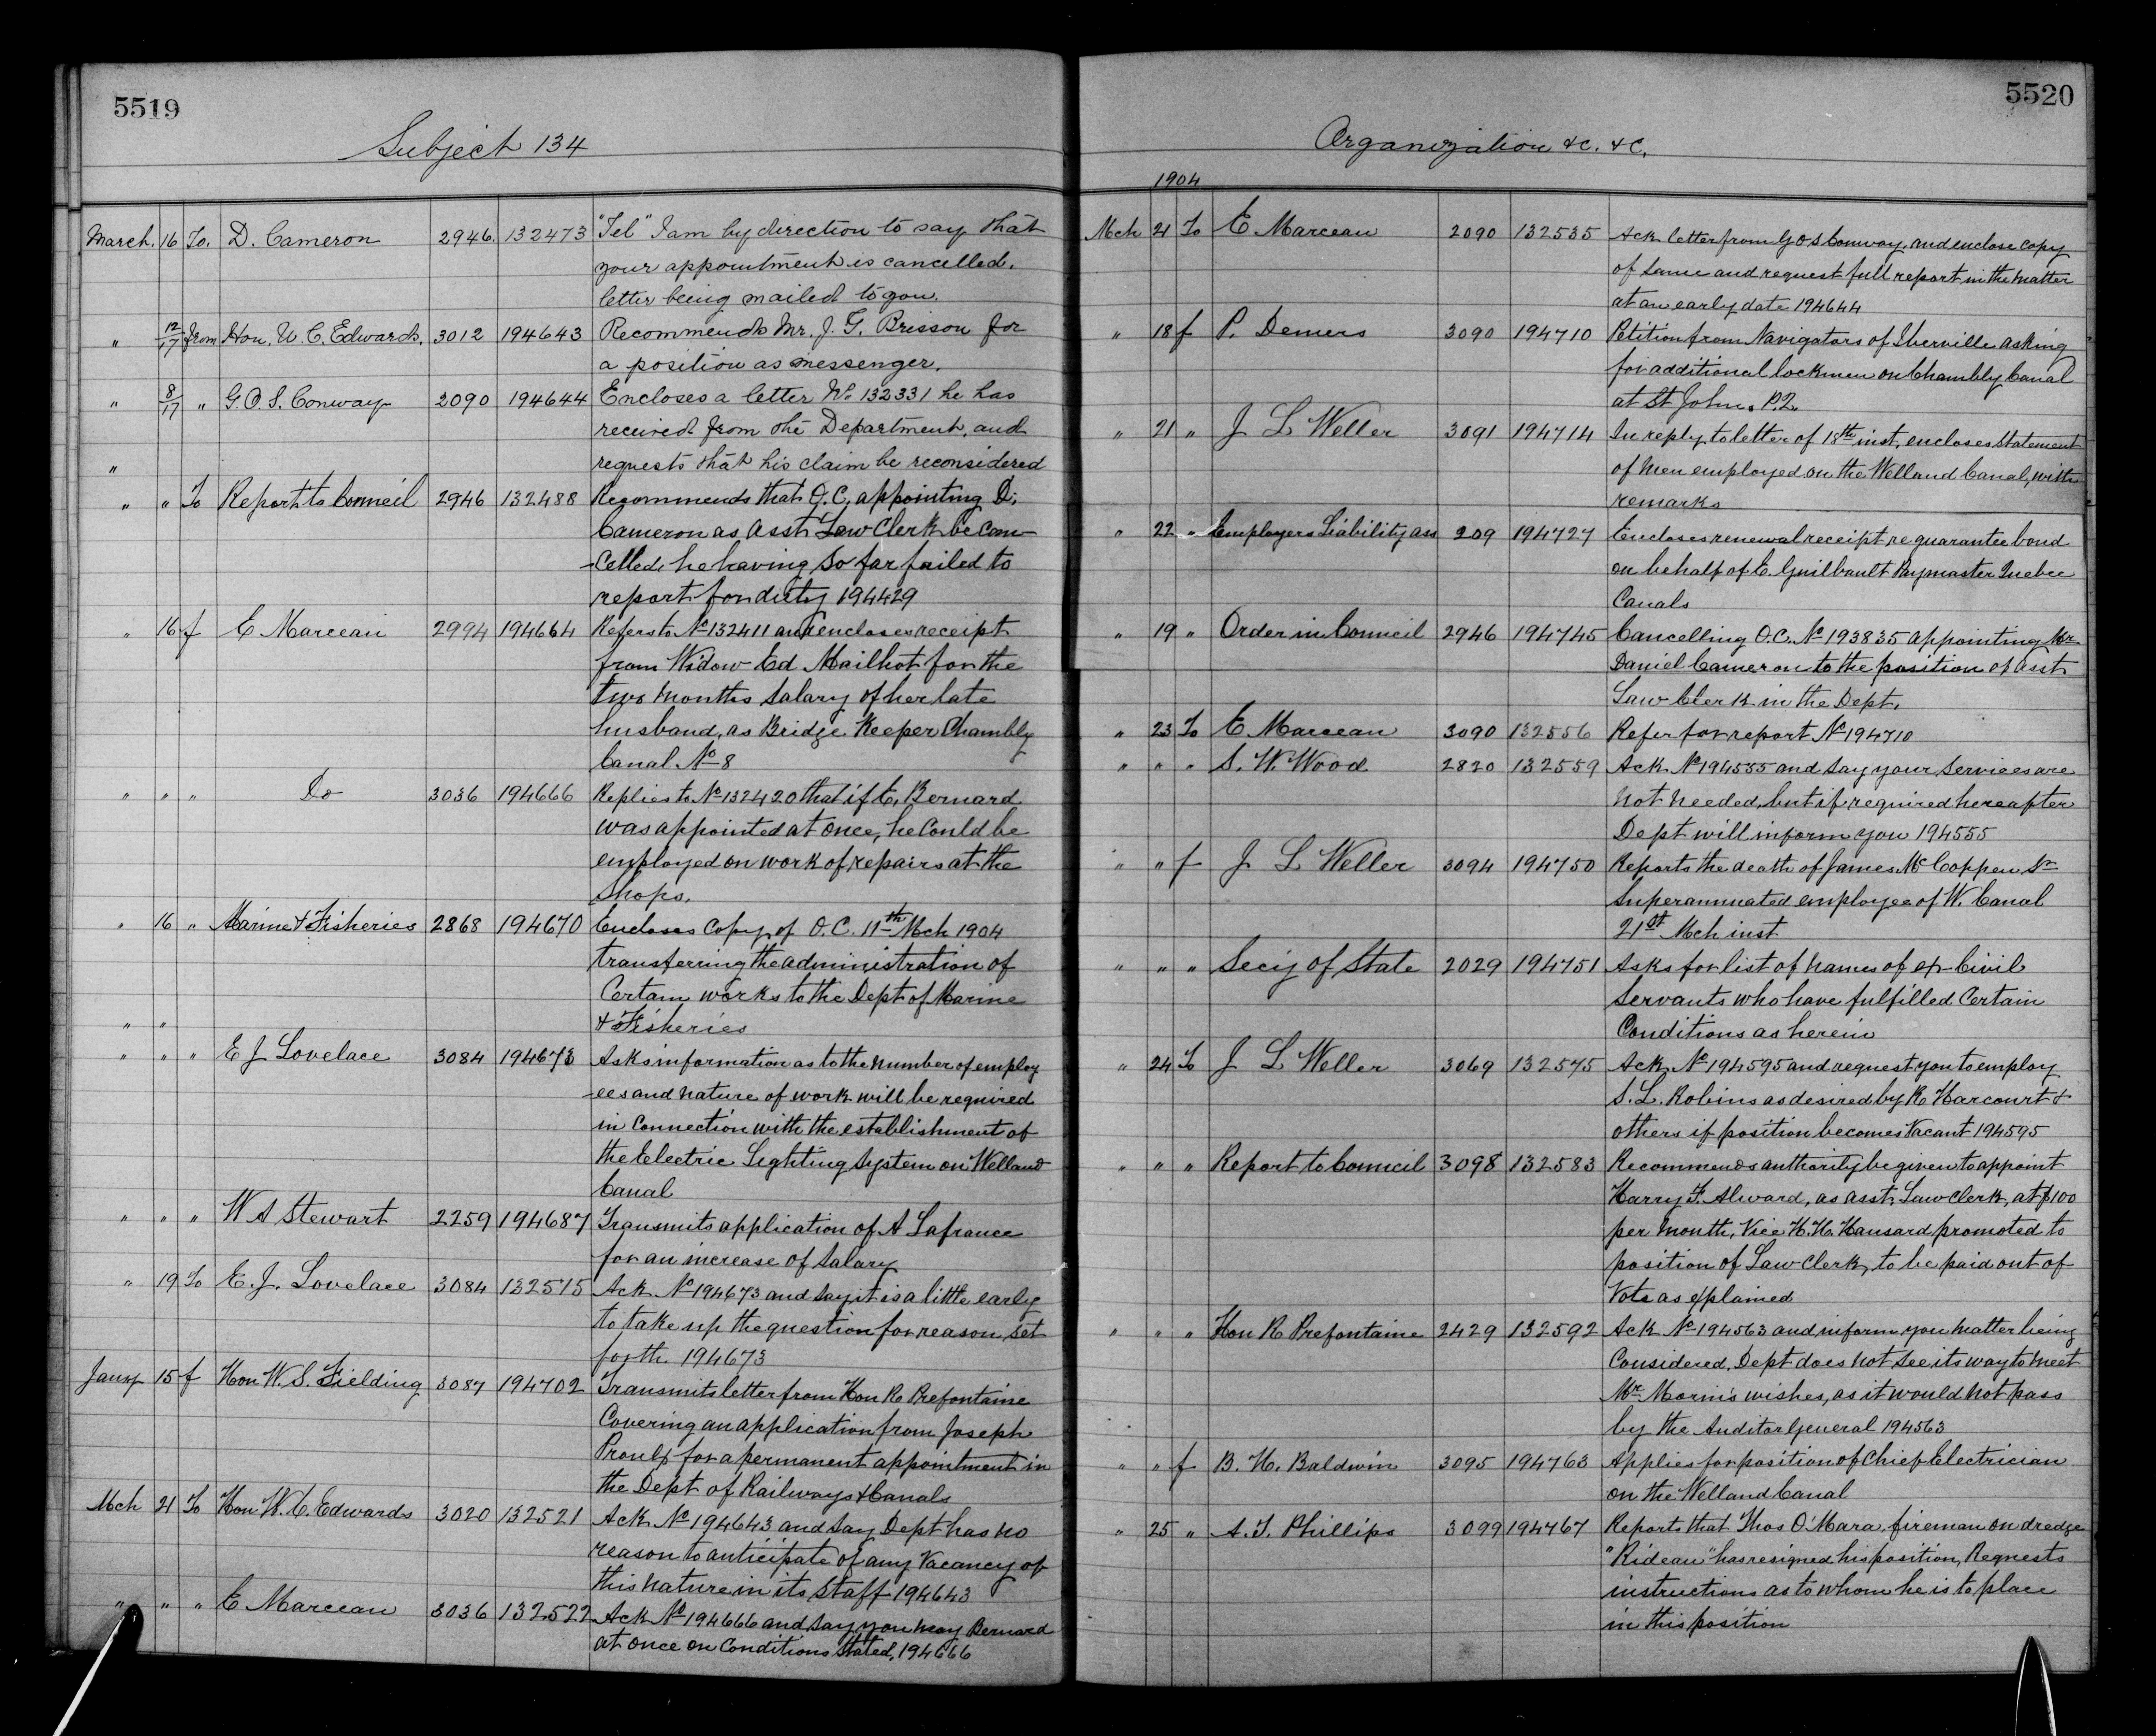 5519
Subject 134
March. 16 To. D. Cameron 2946. 132473 "Tel" I am by direction to say that
your appointment is cancelled.
letter being mailed to you.
" 12/17 from Hon. W. C. Edwards. 3012 194643 Recommends Mr. J. G. Brisson for
a position as messenger.
" 8/17 " G. O. S. Conway 2090 194644 Encloses a letter No 132331 he has
received from the Department, and
" requests that his claim be reconsidered
" " To Report to Council 2946 132488 Recommends that O.C. appointing D.
Cameron as Asst Law Clerk be can-
-celled, he having so far failed to
report for duty 194429
" 16 f E Marceau 2994 194664 Refers to No 132411 and encloses receipt
from Widow Ed Mailhot for the
two months salary of her late
husband, as Bridge Keeper Chambly
Canal No 8
" " " Do 3036 194666 Replies to No 132420 that if E. Bernard
was appointed at once, he could be
employed on work of repairs at the
Shops.
" 16 " Marine & Fisheries 2868 194670 Encloses Copy of O.C. 11th Mch 1904
transferring the administration of
Certain works to the Dept of Marine
" " & Fisheries
" " " E J Lovelace 3084 194673 Asks information as to the number of employ
-ees and nature of work will be required
in Connection with the establishment of
the Electric Lighting System on Welland
Canal
" " " W A Stewart 2259 194687 Transmits application of A Lafrance
for an increase of Salary
" 19 To E. J. Lovelace 3084 132515 Ack No 194673 and say it is a little early
to take up the question for reason set
forth. 194673
Jany 15 f Hon W. S. Fielding 3087 194702 Transmits letter from Hon R Prefontaine
Covering an application from Joseph
Proulx for a permanent appointment in
the Dept of Railways & Canals
Mch 21 To Hon W. C. Edwards 3020 132521 Ack No 194643 and say Dept has no
reason to anticipate of any Vacancy of
this nature in its staff 194643
" " " E Marceau 3036 132522 Ack No 194666 and say you may Bernard
at once on Conditions stated, 194666
5520
Organization &c. &c.
1904
Mch 21 To E Marceau 2090 132535 Ack letter from G O S Conway, and enclose copy
of same and request full report in the matter
at an early date 194644
" 18 f P. Demers 3090 194710 Petition from Navigators of Iberville asking
for additional lockmen on Chambly Canal
at St Johns. P.Q.
" 21 " J L Weller 3091 194714 In reply to letter of 18th inst, encloses statement
of men employed on the Welland Canal, with
remarks
" 22 " Employers Liability ass 209 194727 Encloses renewal receipt re guarantee bond
on behalf of E. Guilbault Paymaster Quebec
Canals
" 19 " Order in Council 2946 194745 Cancelling O.C. No 193835 appointing Mr
Daniel Cameron to the position of asst
Law Clerk in the Dept.
" 23 To E Marceau 3090 132556 Refer for report No 194710
" " " S. W. Wood 2820 132559 Ack No 194555 and say your services are
not needed, but if required hereafter
Dept will inform you 194555
" " f J L Weller 3094 194750 Reports the death of James McCoppen Sr
Superannuated employee of W. Canal
21st Mch inst
" " " Secy of State 2029 194751 Asks for list of names of ex Civil
Servants who have fulfilled Certain
Conditions as herein
" 24 To J L Weller 3069 132575 Ack No 194595 and request you to employ
S. L. Robins as desired by R Harcourt &
others if position becomes vacant 194595
" " " Report to Council 3098 132583 Recommends authority be given to appoint
Harry F. Alward, as asst Law Clerk, at $100
per month, vice H. H. Hansard promoted to
position of Law Clerk, to be paid out of
Vote as explained
" " " Hon R Prefontaine 2429 132592 Ack No 194563 and inform you matter being
Considered, Dept does not see its way to meet
Mr Morin's wishes, as it would not pass
by the Auditor General 194563
" " f B. H. Baldwin 3095 194763 Applies for position of Chief Electrician
on the Welland Canal
" 25 " A. T. Phillips 3099 194767 Reports that Thos O'Mara, fireman on dredge
"Rideau" has resigned his position, Requests
instructions as to whom he is to place
in this position